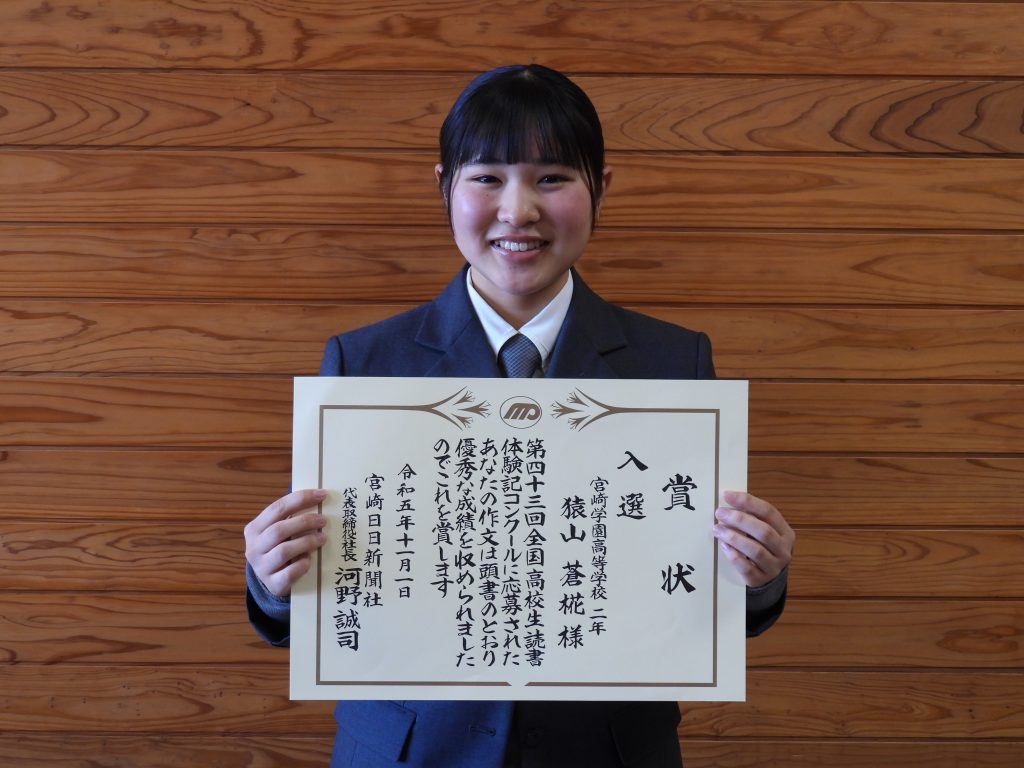 賞状
入選
宮崎学園高等学校 二年
猿山 蒼椛 様
第四十三回全国高校生読書
体験記コンクールに応募された
あなたの作文は頭書のとおり
優秀な成績を収められました
のでこれを賞します
令和五年十一月一日
宮崎日日新聞社
代表取締役社長 河野誠司